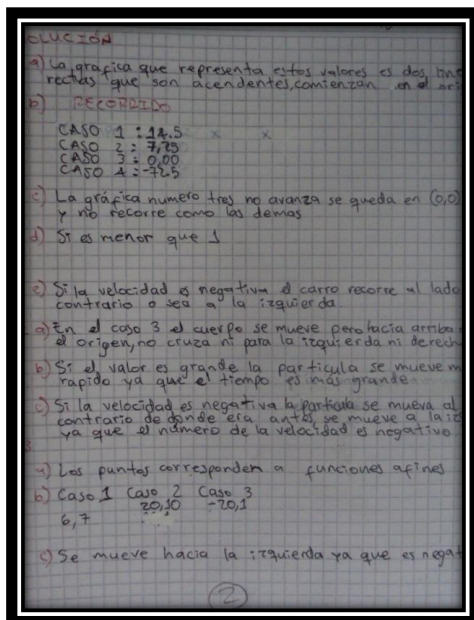 OLUCIÓN
a) La gráfica que representa estos valores es dos
rectas que son acendentes, comienzan en el
b) RECORRIDO
CASO 1 : 14.5 x x
CASO 2 : 7,25
CASO 3 : 0,00
CASO 4 : -72.5
c) La gráfica numero tres no avanza se queda en (0,0)
y no recorre como las demas
d) Si es menor que 1
e) Si la velocidad es negativa el carro recorre al lado
contrario o sea a la izquierda.
a) En el caso 3 el cuerpo se mueve pero hacia arriba
el origen, no cruza ni para la izquierda ni derech
b) Si el valor es grande la particula se mueve m
rapido ya que el tiempo es más grande
c) Si la velocidad es negativa la particula se mueva al
contrario de donde era antes, se mueve a la iz
ya que el número de la velocidad es negativo
a) Los puntos corresponden a funciones afines
b) Caso 1 Caso 2 Caso 3
6,7 20,10 -20,1
c) Se mueve hacia la izquierda ya que es negat
2